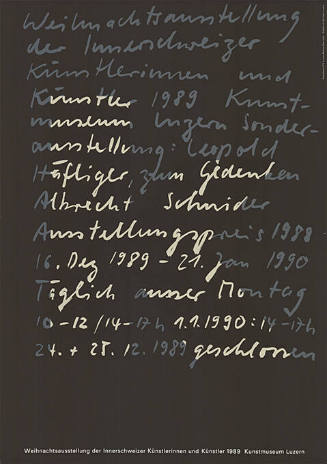 Weihnachtsausstellung
der Innerschweizer
Künstlerinnen und
Künstler 1989 Kunst-
museum Luzern Sonder-
ausstellung: Leopold
Häfliger, zum Gedenken
Albrecht Schnider
Ausstellungspreis 1988
16. Dez 1989 - 21. Jan 1990
Täglich ausser Montag
10-12/14-17h 1.1.1990: 14-17h
24. + 25. 12. 1989 geschlossen
Weihnachtsausstellung der Innerschweizer Künstlerinnen und Künstler 1989 Kunstmuseum Luzern